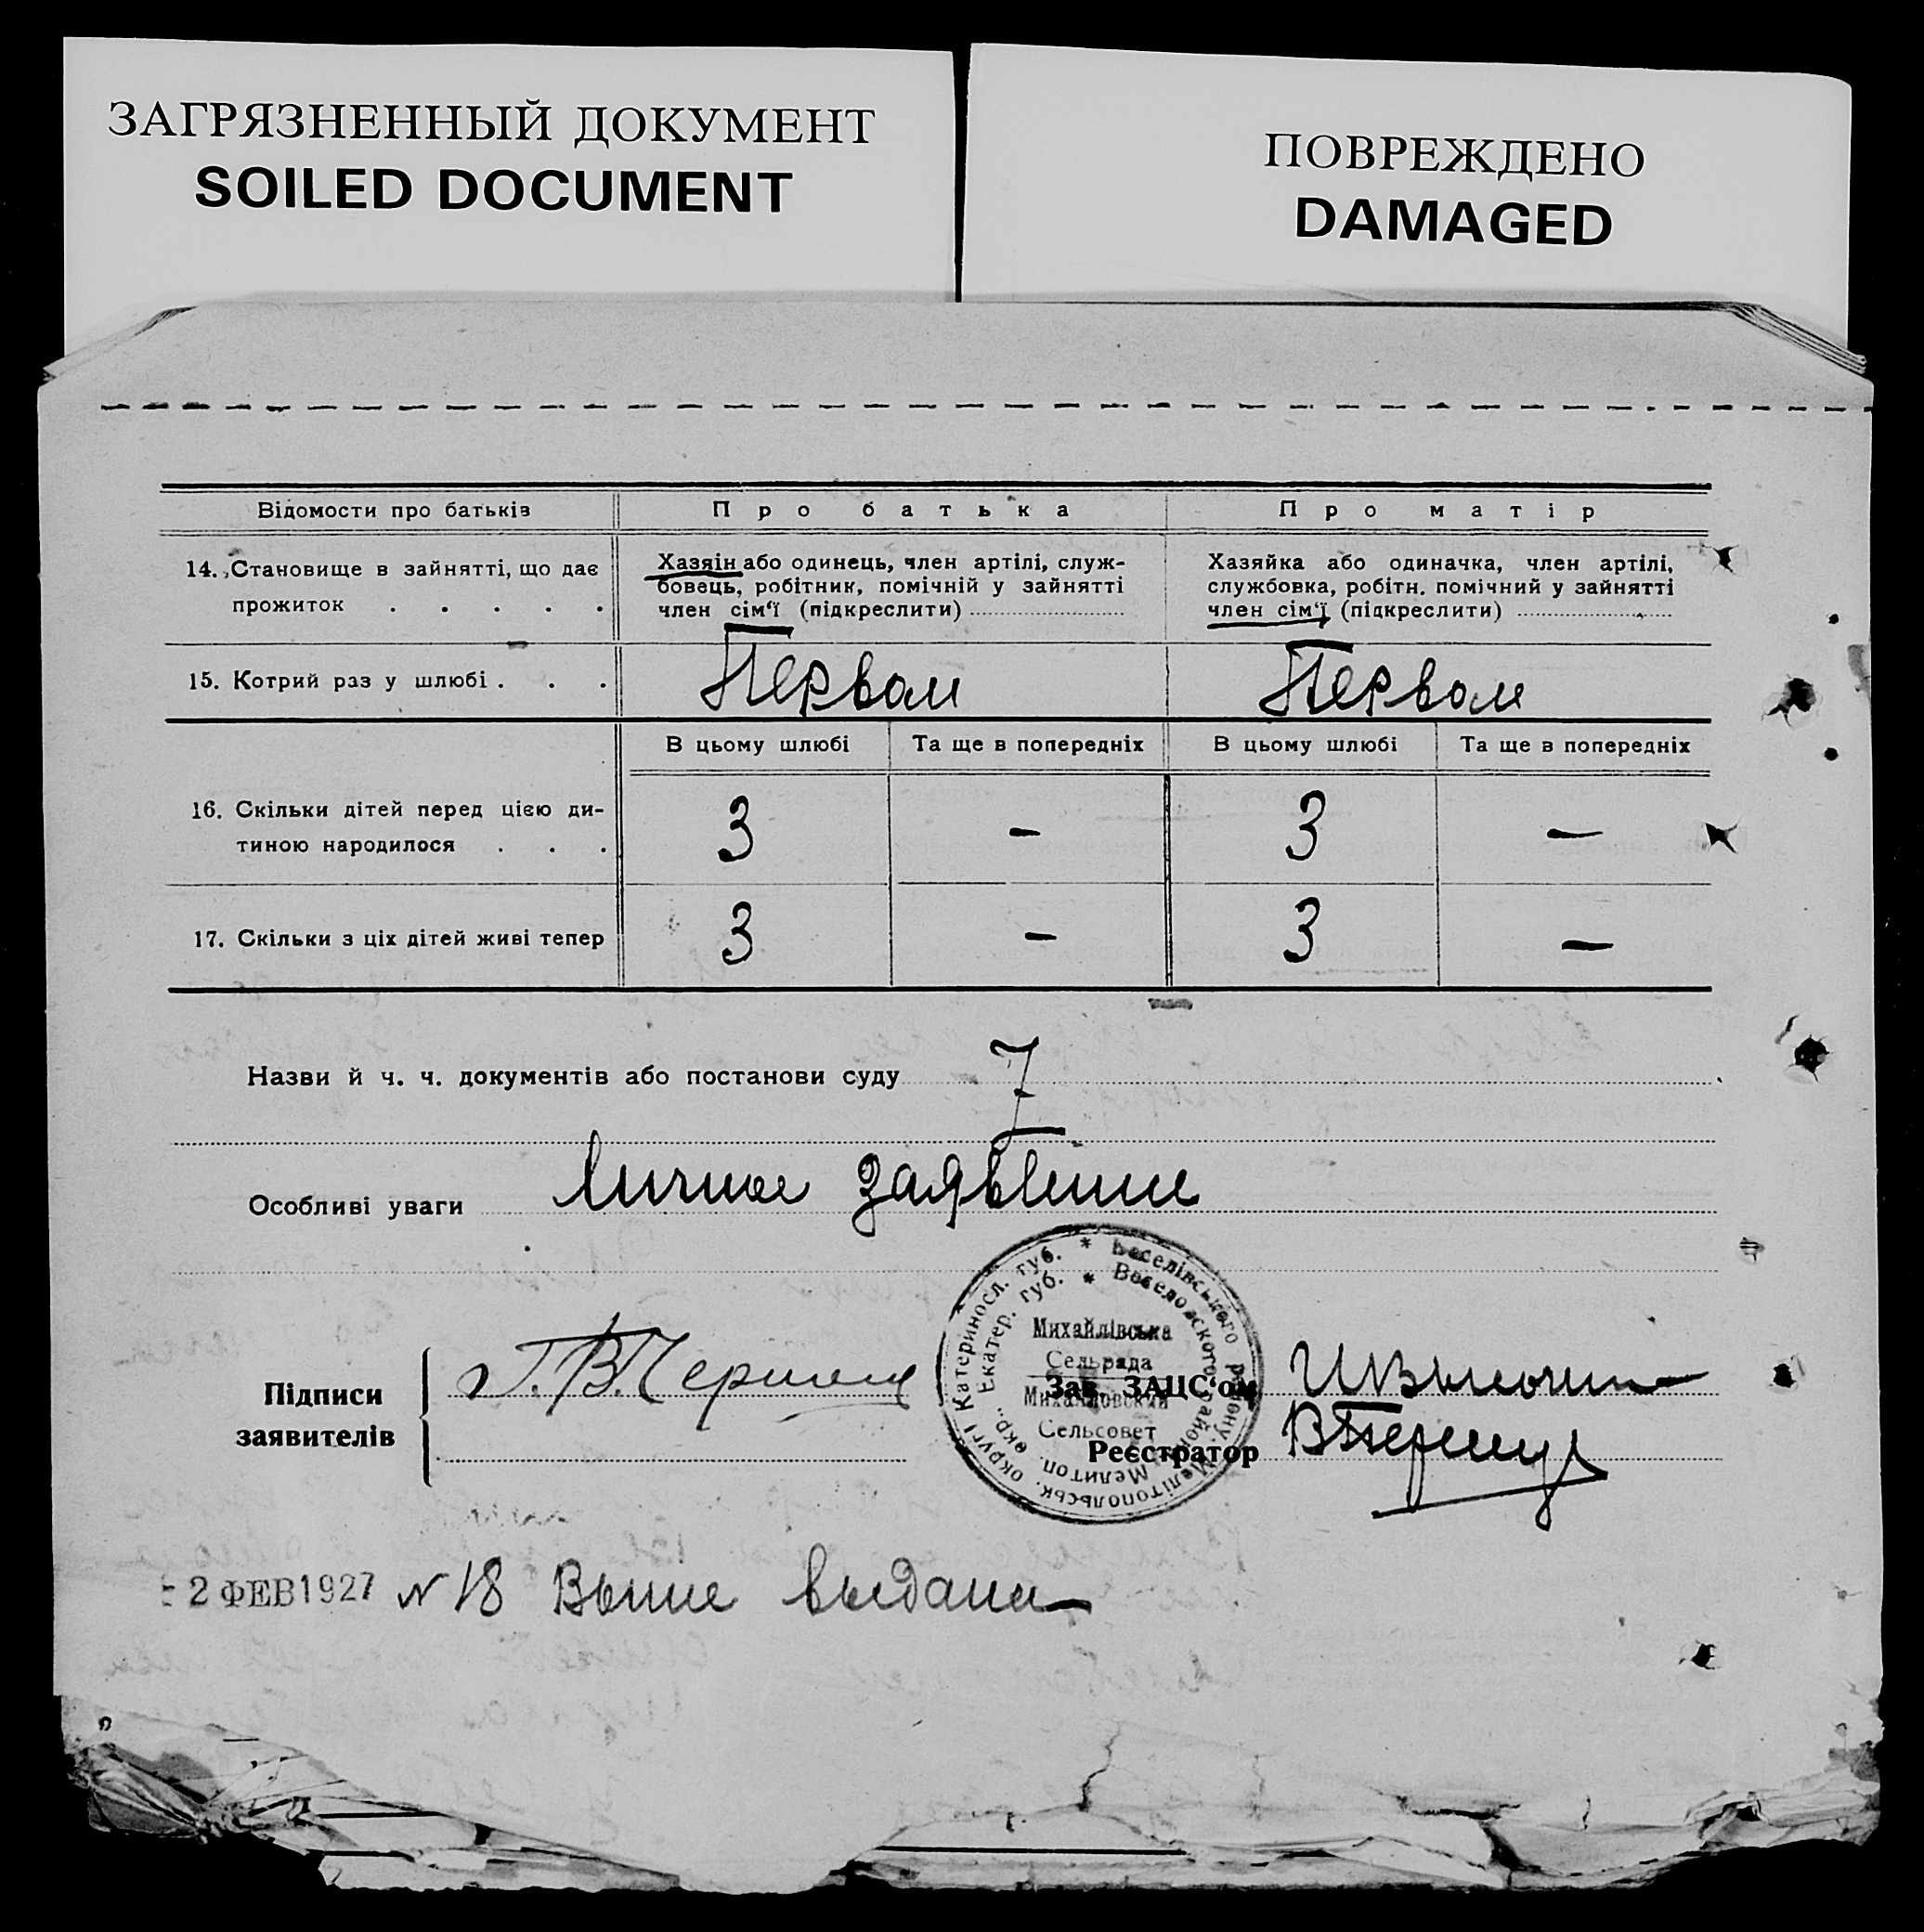 ЗАГРЯЗНЕННЫЙ ДОКУМЕНТ
SOILED DOCUMENT
ПОВРЕЖДЕНО
DAMAGED
Відомости про батьків
Про батька
Про матір
14. Становище в зайнятті, що дає
прожиток . . . . .
Хазяін або одинець, член артілі, служ-
бовець, робітник, помічній у зайнятті
член сім‘ї (підкреслити)
Хазяйка або одиначка, член артілі,
службовка, робітн. помічний у зайнятті
член сім‘ї (підкреслити)
15. Котрий раз у шлюбі . . .
Первом
Первом
В цьому шлюбі
Та ще в попередніх
В цьому шлюбі
Та ще в попередніх
16. Скільки дітей перед цією ди-
тиною народилося . . .
3 - 3 -
17. Скільки з ціх дітей живі тепер
3 - 3 -
Назви й ч. ч. документів або постанови суду
Особливі уваги Личное заявление
Катериносл. губ. * Веселівського району, Мелітопольськ. округі
Екатер. губ. * Веселовского района Мелитоп. окр.
Михайлівська
Сельрада
Михайловский
Сельсовет
Підписи
заявителів
Зав. ЗАЦС‘ом
Реєстратор
2 ФЕВ 1927 № 18 Выпис выдана